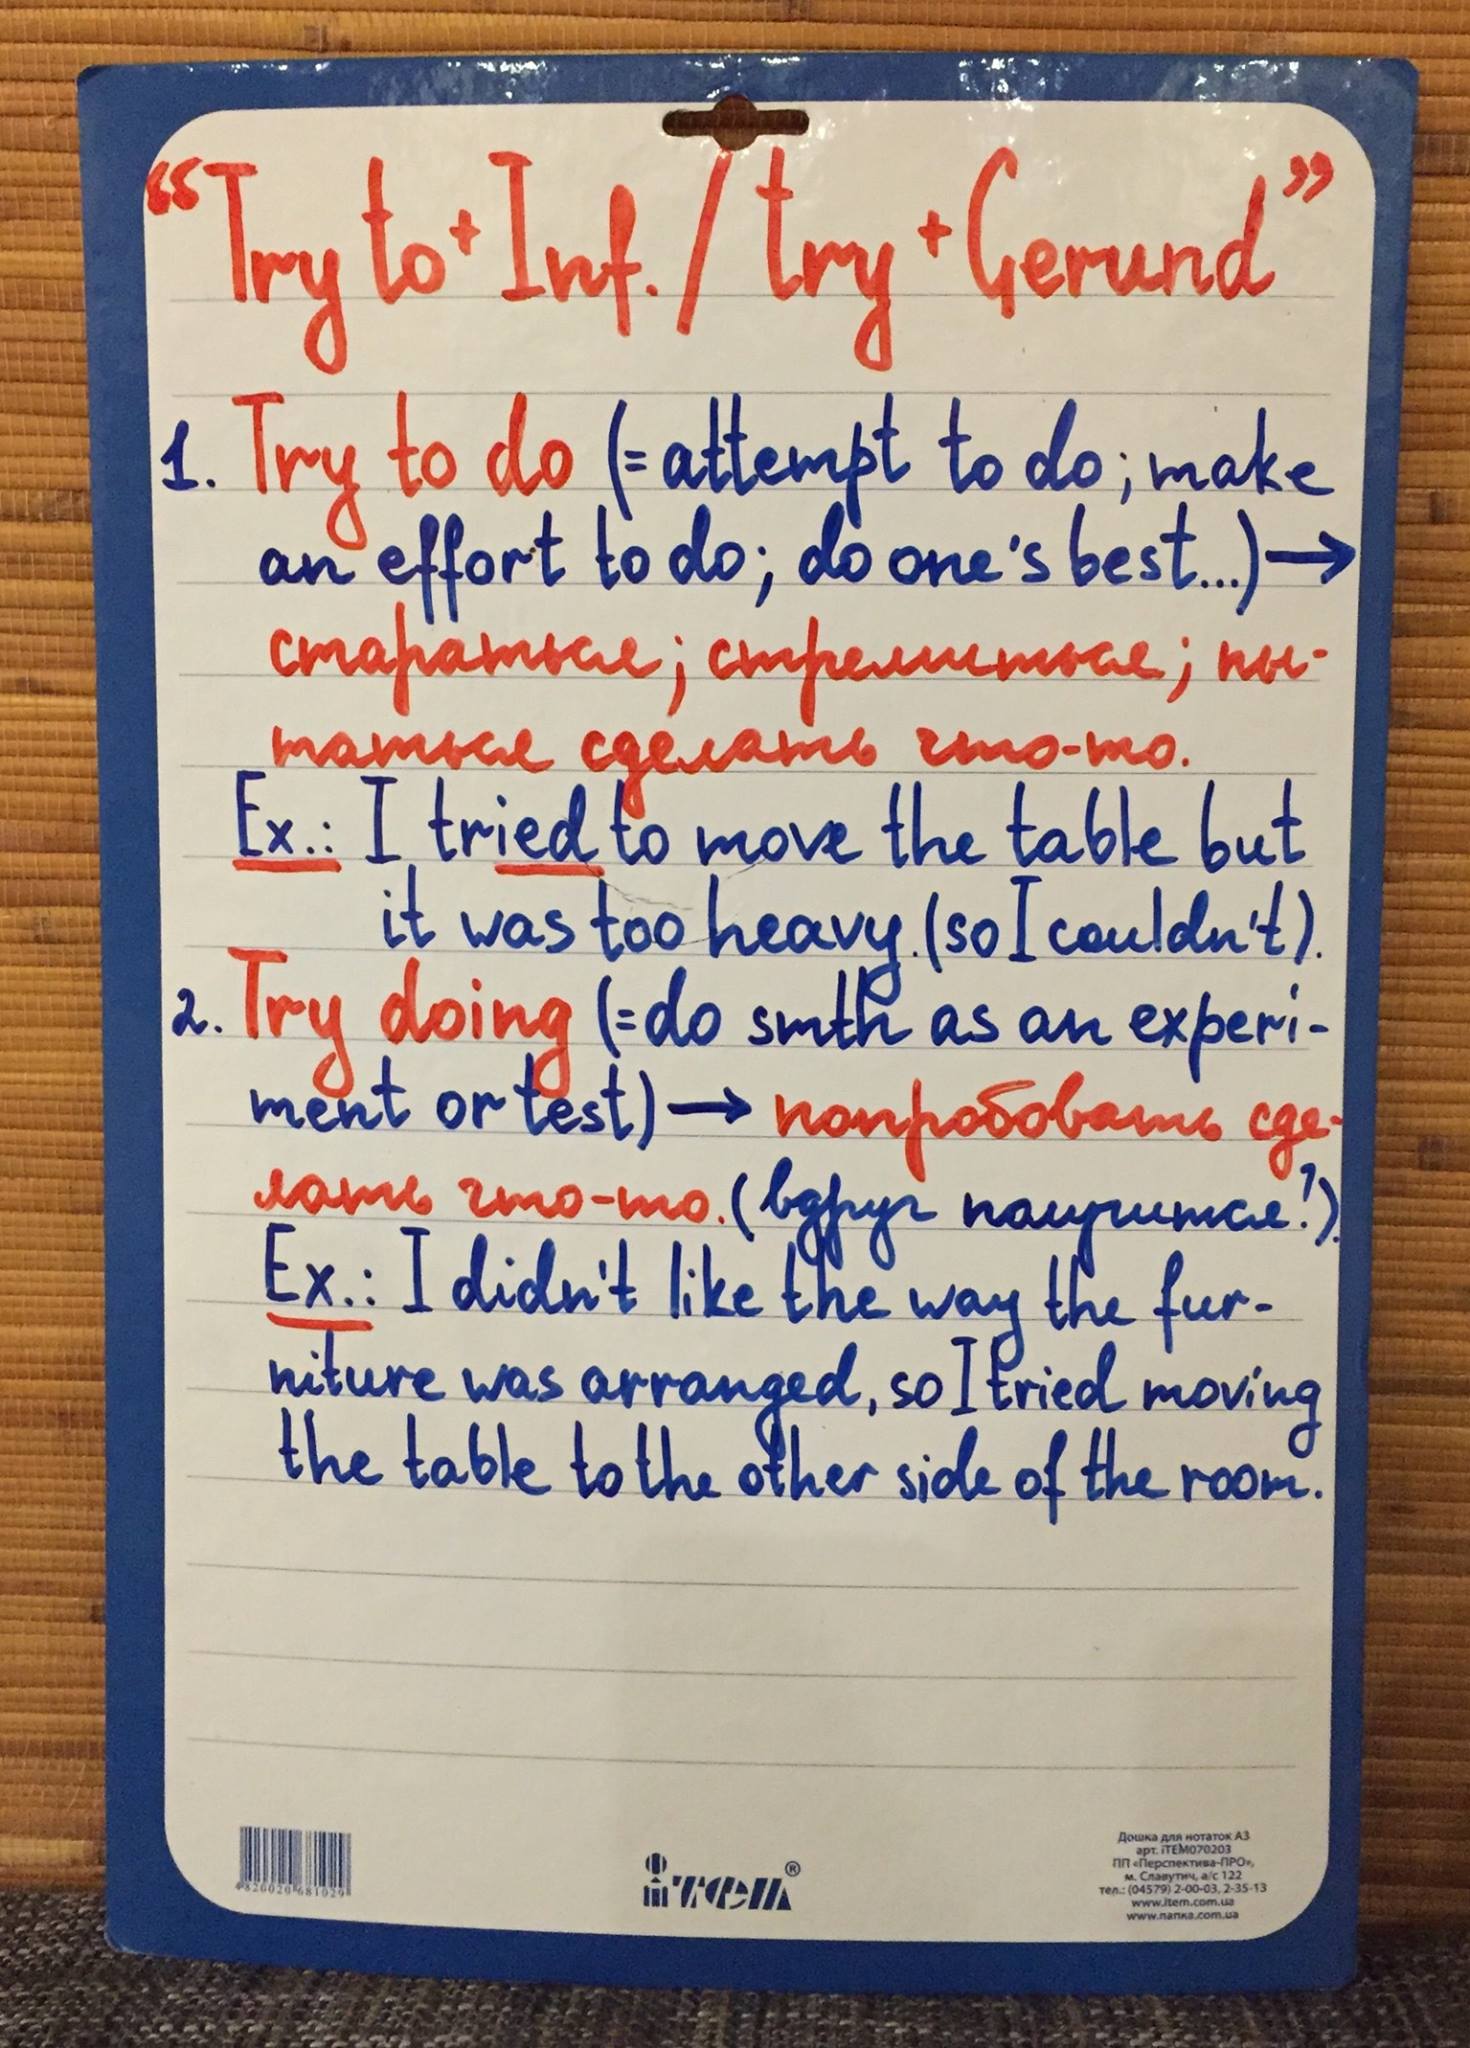 “Try to + Inf. / try + Gerund”
1. Try to do (= attempt to do; make
an effort to do; do one's best...) →
стараться; стремиться; пы-
таться сделать что-то.
Ex.: I tried to move the table but
it was too heavy. (so I couldn't).
2. Try doing (= do smth as an experi-
ment or test) → попробовать сде-
лать что-то. (вдруг получится?).
Ex.: I didn't like the way the fur-
niture was arranged, so I tried moving
the table to the other side of the room.
4820020681029
iтем®
Дошка для нотаток А3
арт. iTEM070203
ПП «Перспектива-ПРО»,
м. Славутич, а/с 122
тел.: (04579) 2-00-03, 2-35-13
www.item.com.ua
www.папка.com.ua